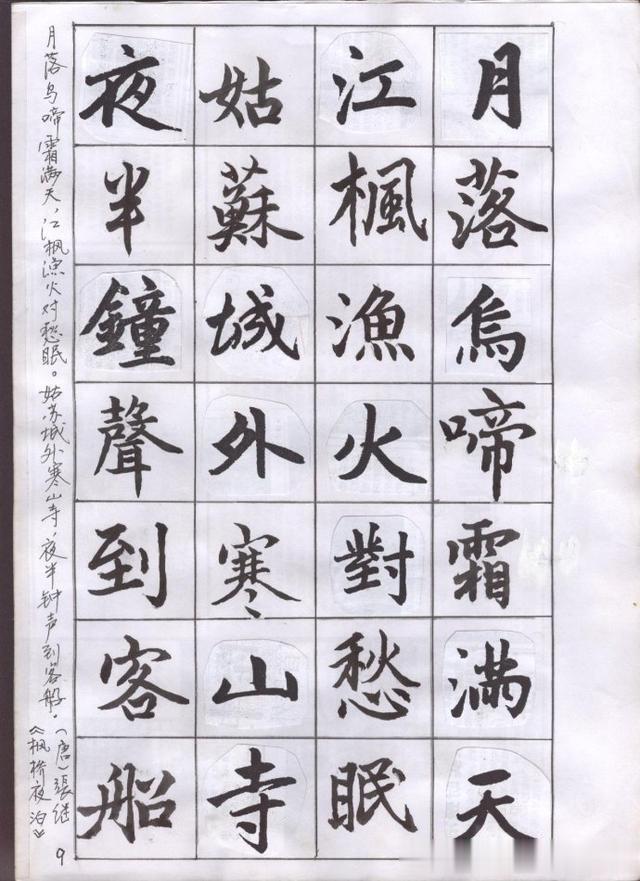 月落烏啼霜滿天
江楓漁火對愁眠
姑蘇城外寒山寺
夜半鐘聲到客船
月落乌啼霜满天，江枫渔火对愁眠。姑苏城外寒山寺，夜半钟声到客船。(唐)張继
《枫桥夜泊》
9